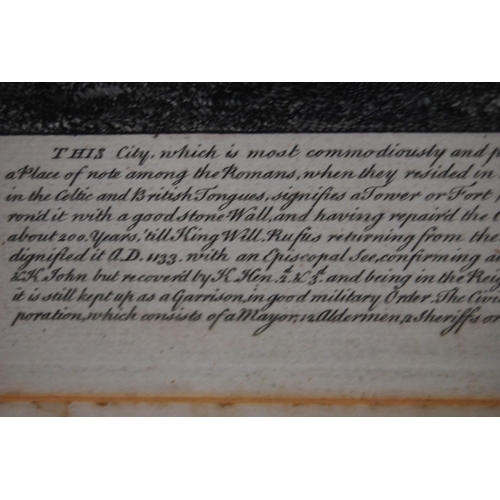 THIS City, which is most commodiously and p
a Place of note among the Romans, when they resided in
in the Celtic and British Tongues, signifies a Tower or Fort
ron'd it with a good Stone Wall, and having repair'd the C
about 200. Years, 'till King Will. Rufus returning from the
dignified it A.D. 1133. with an Episcopal See, confirming a
& K. John but recover'd by K. Hen. 2.d & 3.d and being in the Reig
it is still kept up as a Garrison, in good military Order. The Civi
poration, which consists of a Mayor, 12 Aldermen, 2 Sheriffs or